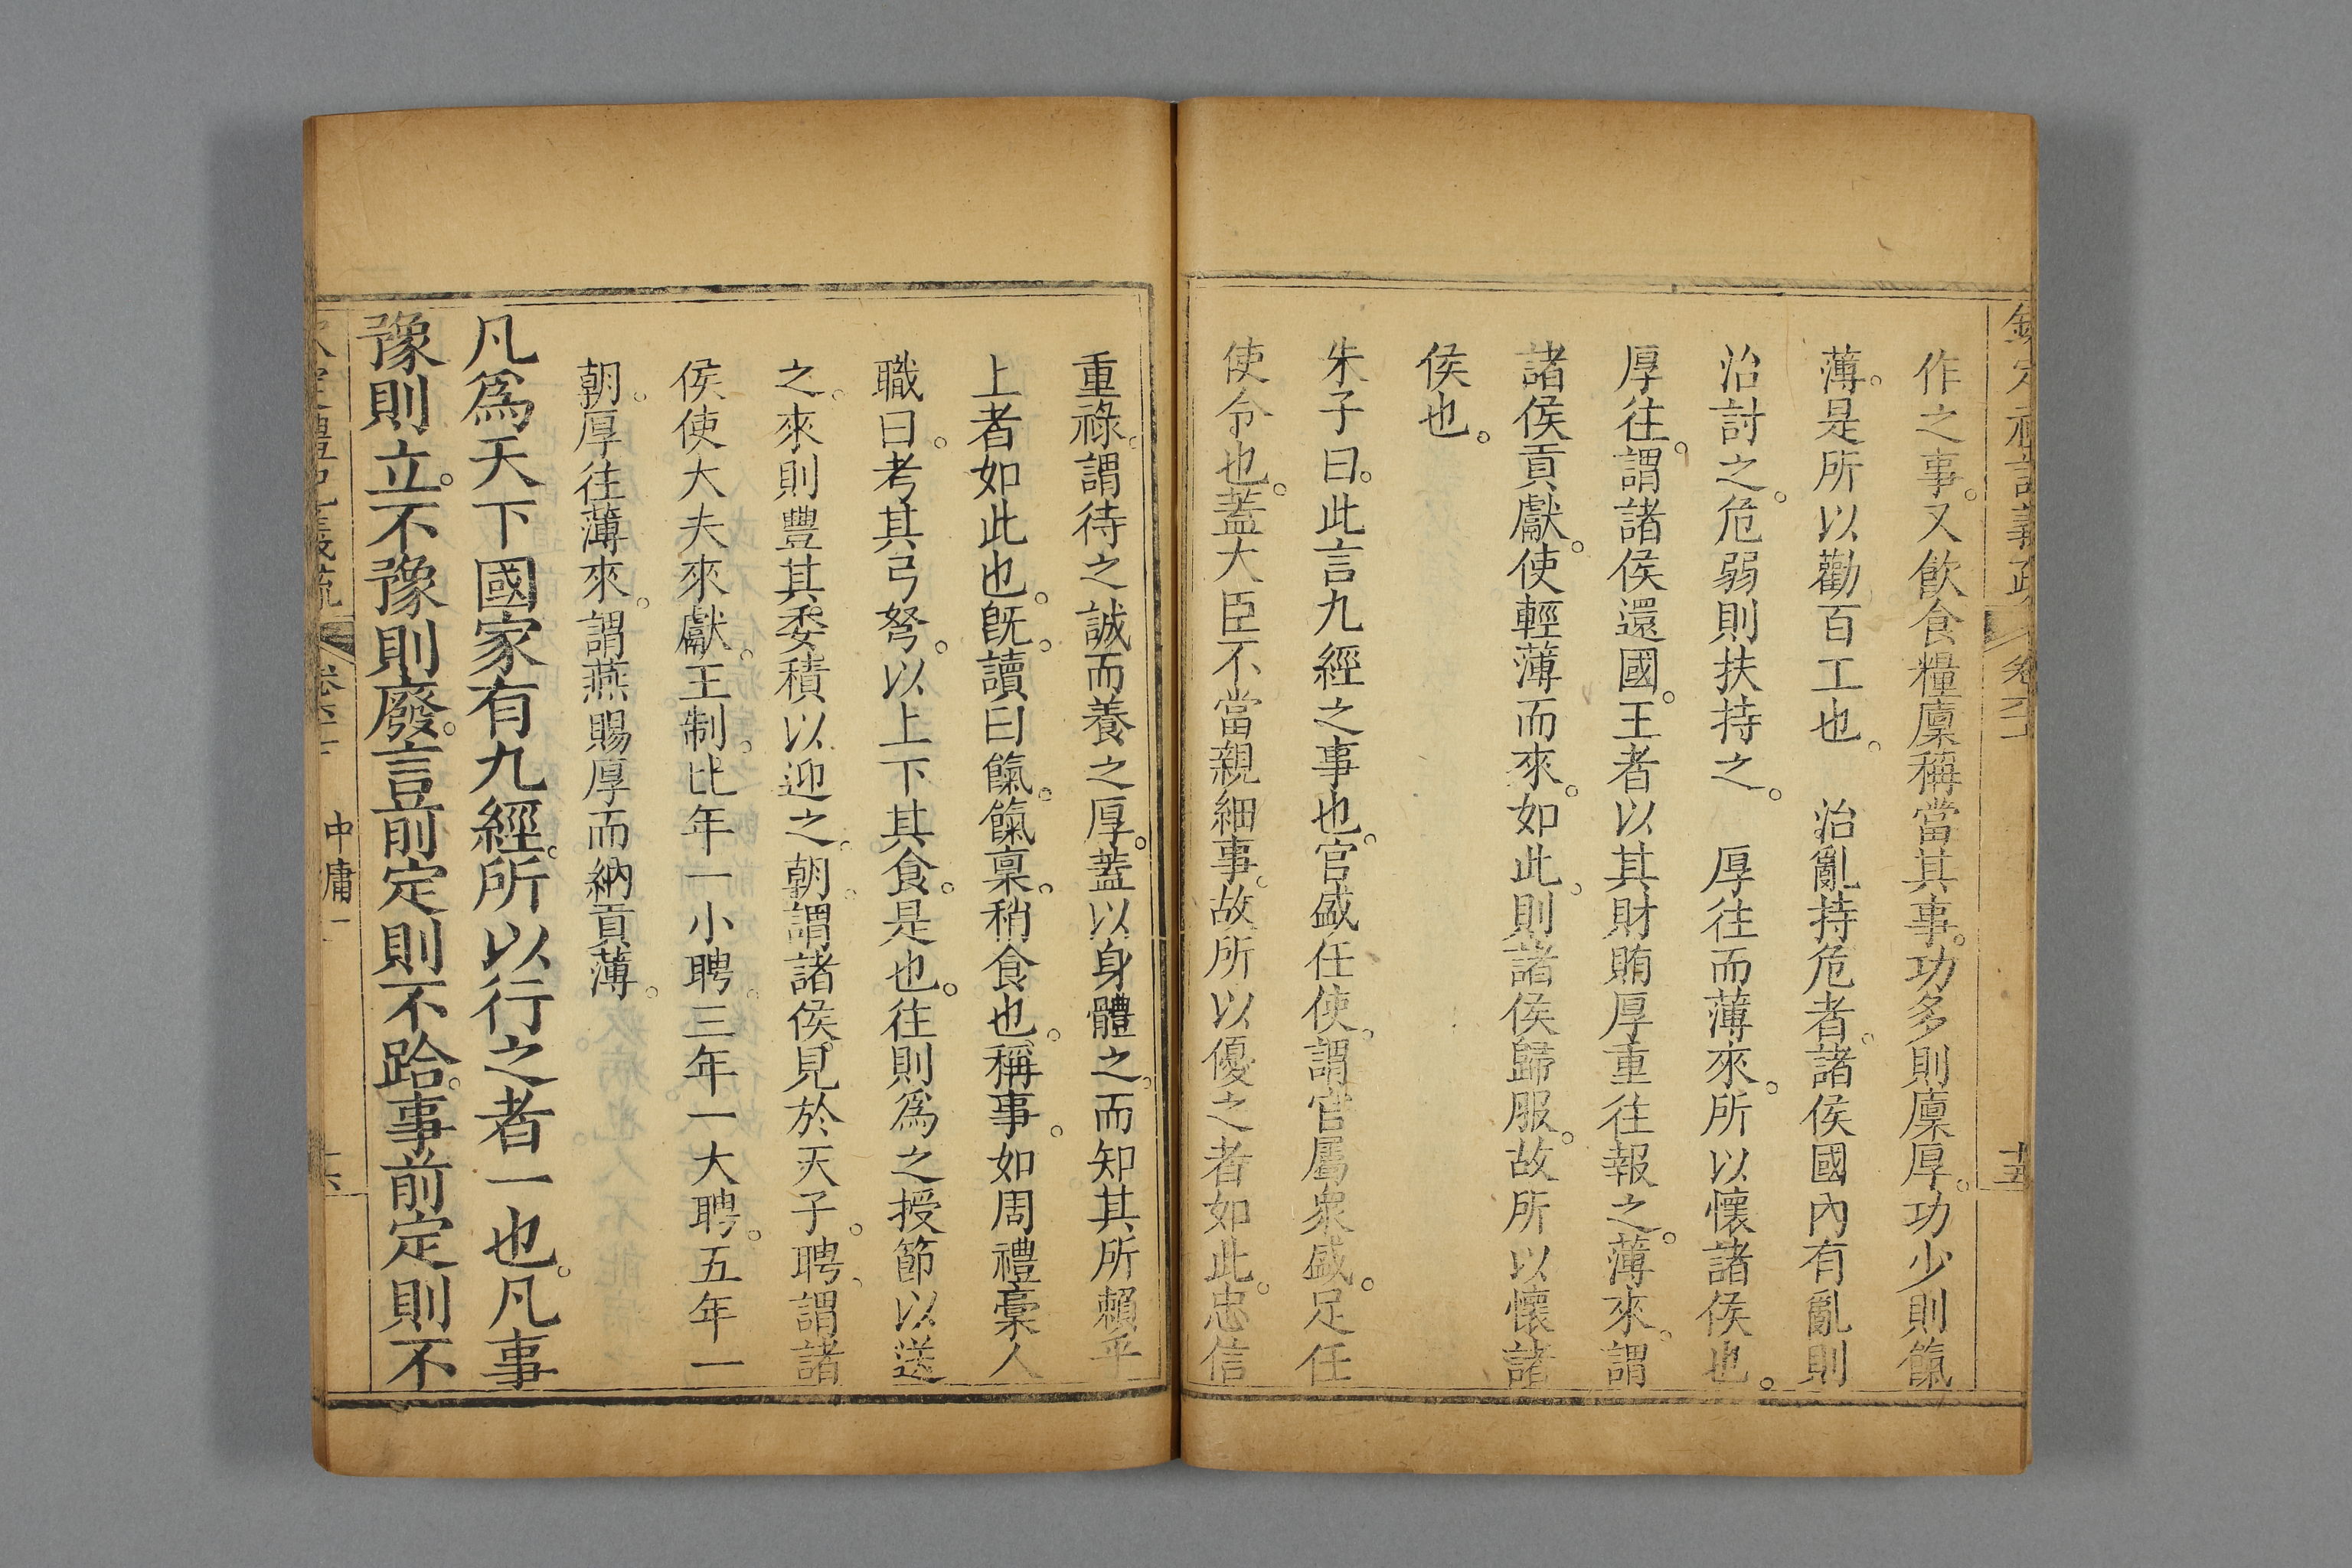 作之事。又飲食糧廩稱當其事。功多則廩厚。功少則餼
薄。是所以勸百工也。　治亂持危者。諸侯國內有亂則
治討之。危弱則扶持之。　厚往而薄來。所以懷諸侯也。
厚往。謂諸侯還國。王者以其財賄厚重往報之。薄來。謂
諸侯貢獻。使輕薄而來。如此。則諸侯歸服。故所以懷諸
侯也。
朱子曰。此言九經之事也。官盛任使。謂官屬衆盛。足任
使令也。蓋大臣不當親細事。故所以優之者如此。忠信
重祿。謂待之誠而養之厚。蓋以身體之。而知其所賴乎
上者如此也。旣。讀曰餼。餼稟。稍食也。稱事。如周禮槀人
職曰。考其弓弩。以上下其食。是也。往則爲之授節以送
之。來則豐其委積以迎之。朝。謂諸侯見於天子。聘。謂諸
侯使大夫來獻。王制。比年一小聘。三年一大聘。五年一
朝。厚往薄來。謂燕賜厚而納貢薄。
凡爲天下國家有九經。所以行之者一也。凡事
豫則立。不豫則廢。言前定則不跲。事前定則不
中庸